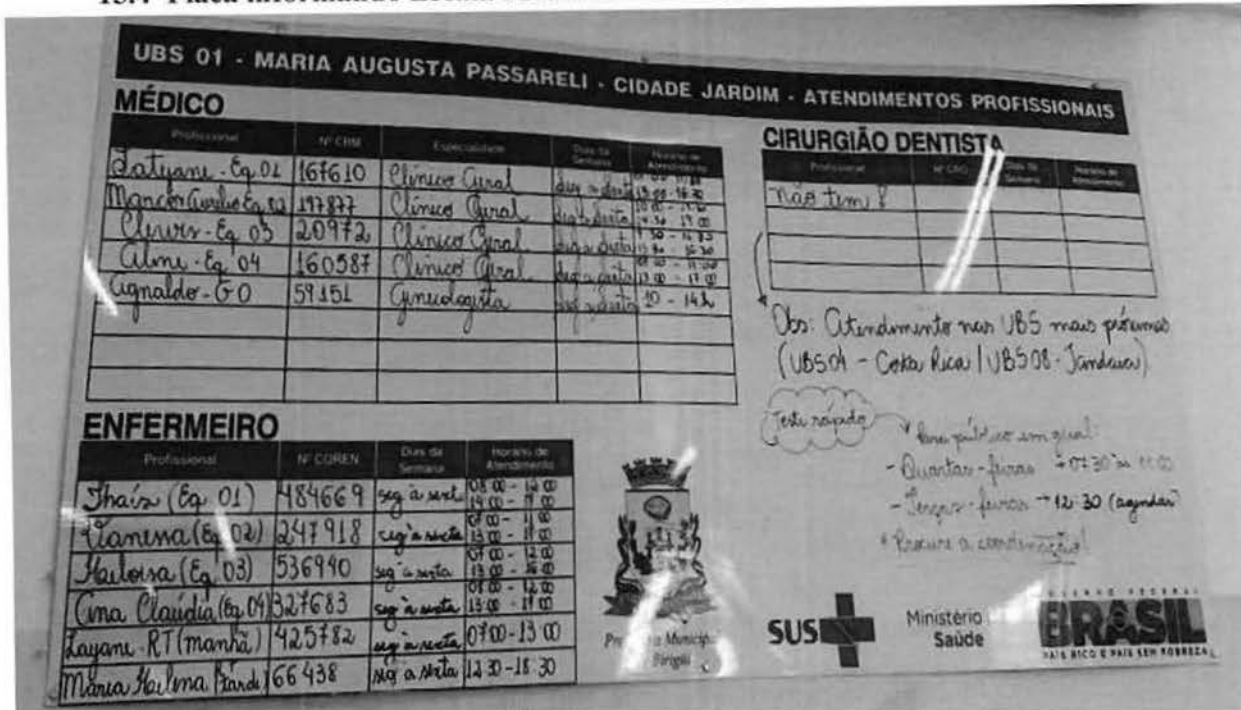 13.4 Placa informando
UBS 01 - MARIA AUGUSTA PASSARELI - CIDADE JARDIM - ATENDIMENTOS PROFISSIONAIS
MÉDICO
Profissional Nº CRM Especialidade Dias da Semana Horário de Atendimento
Tatyani - Eq. 01 167610 Clínico Geral seg a sexta
Marcos Aurélio Eq. 02 197877 Clínico Geral seg a sexta
Eq 03 20972 Clínico Geral seg a sexta
Aline - Eq 04 160587 Clínico Geral seg a sexta 13 00 - 17 00
Agnaldo - GO 59151 Ginecologista seg a sexta 10 - 14h
CIRURGIÃO DENTISTA
Profissional Nº CRO Dias da Semana Horário de Atendimento
Não tem!
Obs: Atendimento nas UBS mais próximas
(UBS04 - Costa Rica / UBS08 - Jandaia)
Teste rápido
Para público em geral:
- Quartas-feiras → 07:30 às 11:00
- Terças-feiras → 12:30 (agendar)
* Procure a coordenação!
ENFERMEIRO
Profissional Nº COREN Dias da Semana Horário de Atendimento
Thaís (Eq. 01) 484669 seg à sext 08 00 - 12 00
Vanessa (Eq. 02) 247918 seg à sexta
Heiloisa (Eq. 03) 536940 seg à sexta 07 00 - 12 00
Ana Claúdia (Eq. 04) 327683 seg à sexta 08 00 - 12 00
Layani - RT (manhã) 425782 seg à sexta 07 00 - 13 00
Maria Heilena (tarde) 66438 seg à sexta 12 30 - 18 30
Prefeitura Municipal
Birigui
SUS
Ministério da
Saúde
GOVERNO FEDERAL
BRASIL
PAÍS RICO É PAÍS SEM POBREZA